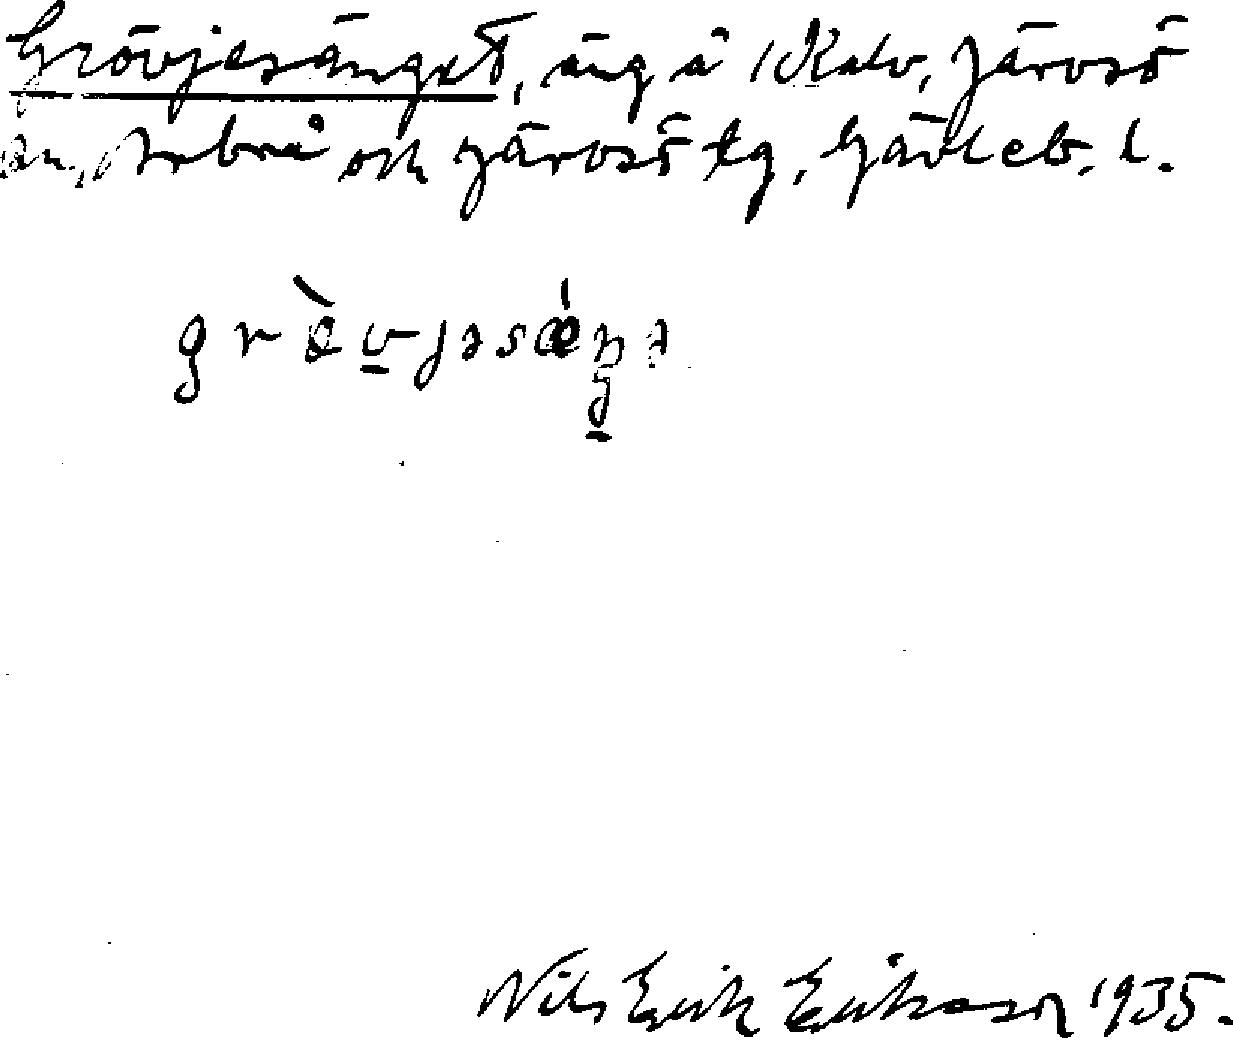 Grövjesänget, äng å Kalv, Järvsö
sn, Arbrå och Järvsö tg, Gävleb. l.
Nils Erik Eriksson 1935.